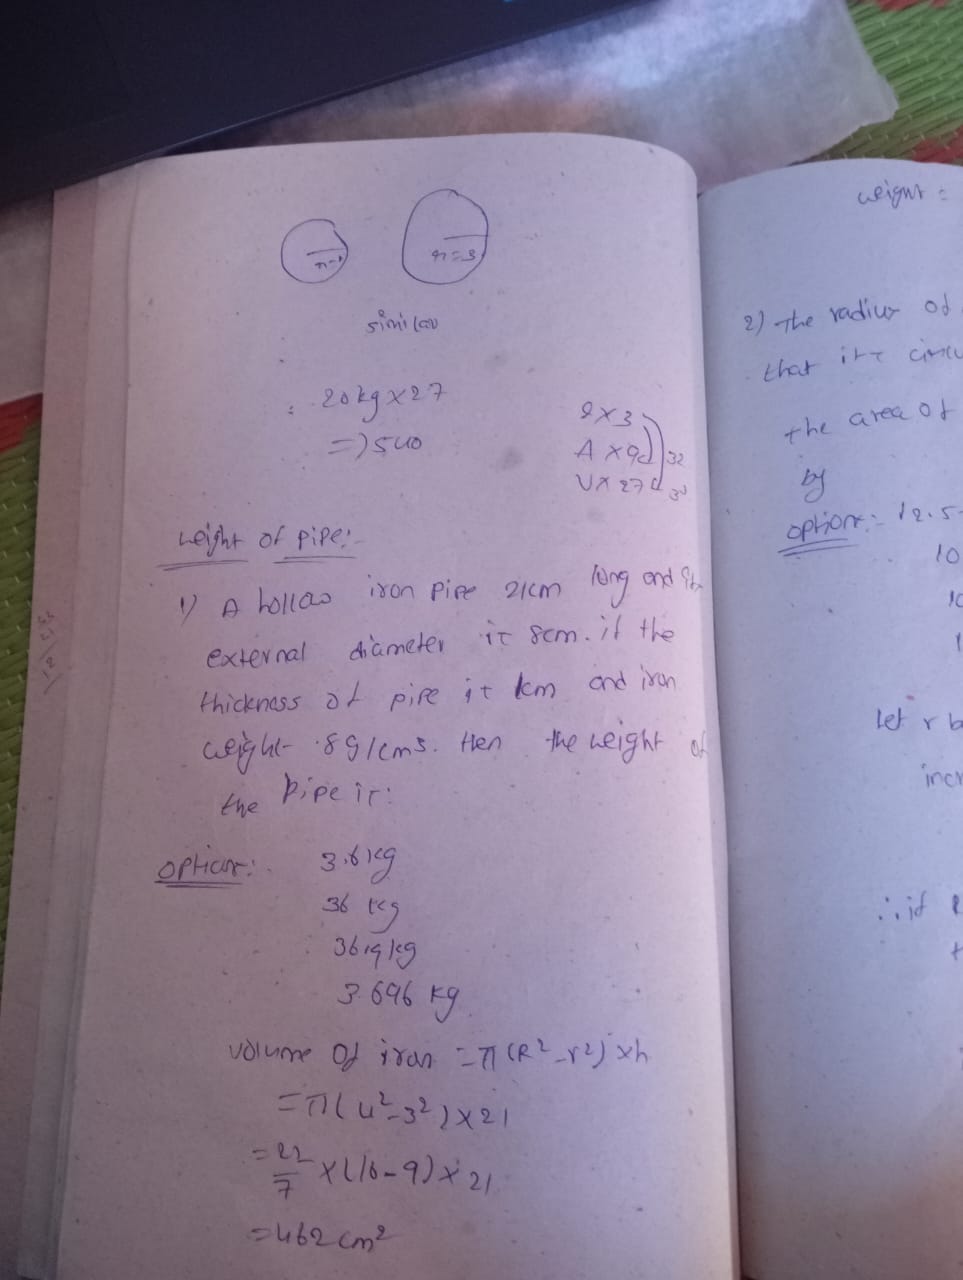 r=3
similar
: 20kg x 27
=> 540
l x 3
A x 9 32
V x 27 33
weight of pipe:-
1) A hollow iron pipe 21cm long and its
external diameter is 8cm. if the
thickness of pipe is 1cm and iron
weight 8g/cm3. then the weight of
the pipe is:
option:
3.6 kg
36 kg
36.9 kg
3.696 kg
volume of iron = π(R²-r²)xh
= π(4²-3²)x21
= 22/7 x(16-9)x21
= 462 cm²
weight =
2) The radius of
that its circu
the area of
by
option:- 12.5
10
10
1
let r b
incr
∴ if
t